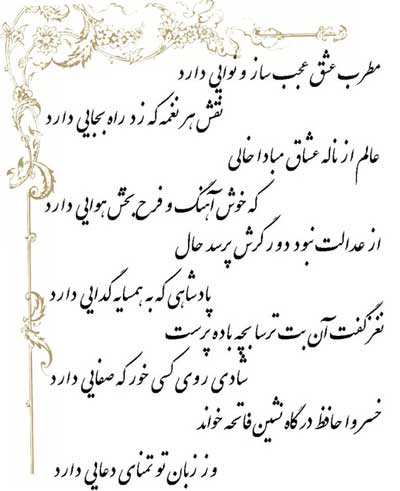 مطرب عشق عجب ساز و نوایی دارد
نقش هر نغمه که زد راه بجایی دارد
عالم از ناله عشاق مبادا خالی
که خوش آهنگ و فرح بخش هوایی دارد
از عدالت نبود دور گرش پرسد حال
پادشاهی که به همسایه گدایی دارد
نغز گفت آن بت ترسا بچه باده پرست
شادی روی کسی خور که صفایی دارد
خسروا حافظ درگاه نشین فاتحه خواند
وز زبان تو تمنای دعایی دارد